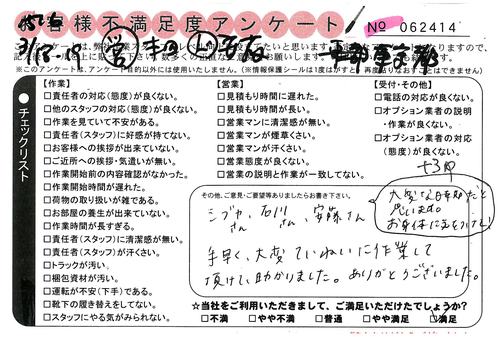 お客様不満足度アンケート
No 062414
3/18-19
※このアンケートは、アンケート目的以外には使用いたしません。(※情報保護シールは1度はがすと、再度貼りなおすことはできません)
●チェックリスト
【作業】
□責任者の対応(態度)が良くない。
□他のスタッフの対応(態度)が良くない。
□作業を見ていて不安がある。
□責任者(スタッフ)に好感が持てない。
□お客様への挨拶が出来ていない。
□ご近所への挨拶・気遣いが無い。
□作業開始前の内容確認がなかった。
□作業開始時間が遅れた。
□荷物の取り扱いが雑である。
□お部屋の養生が出来ていない。
□作業時間が長すぎる。
□責任者(スタッフ)に清潔感が無い。
□責任者(スタッフ)が汗くさい。
□トラックが汚い。
□梱包資材が汚い。
□運転が不安(下手)である。
□靴下の履き替えをしてない。
□スタッフにやる気がみられない。
【営業】
□見積もり時間に遅れた。
□見積もり時間が長い。
□営業マンに清潔感が無い。
□営業マンが煙草くさい。
□営業マンが汗くさい。
□営業態度が良くない。
□営業の説明と作業が一致してない。
【受付・その他】
□電話の対応が良くない。
□オプション業者の説明
・作業が良くない。
□オプション業者の対応
(態度)が良くない。
その他、ご意見・ご要望等ありましたらお書き下さい。
大変な時期だと
思います。
お身体に気をつけて!
ニブヤさん、石川さん、安藤さん
手早く、大変ていねいに作業して
頂けて、助かりました。ありがとうございました。
☆当社をご利用いただきまして、ご満足いただけたでしょうか?
□不満 □やや不満 □普通 □やや満足 ☑満足